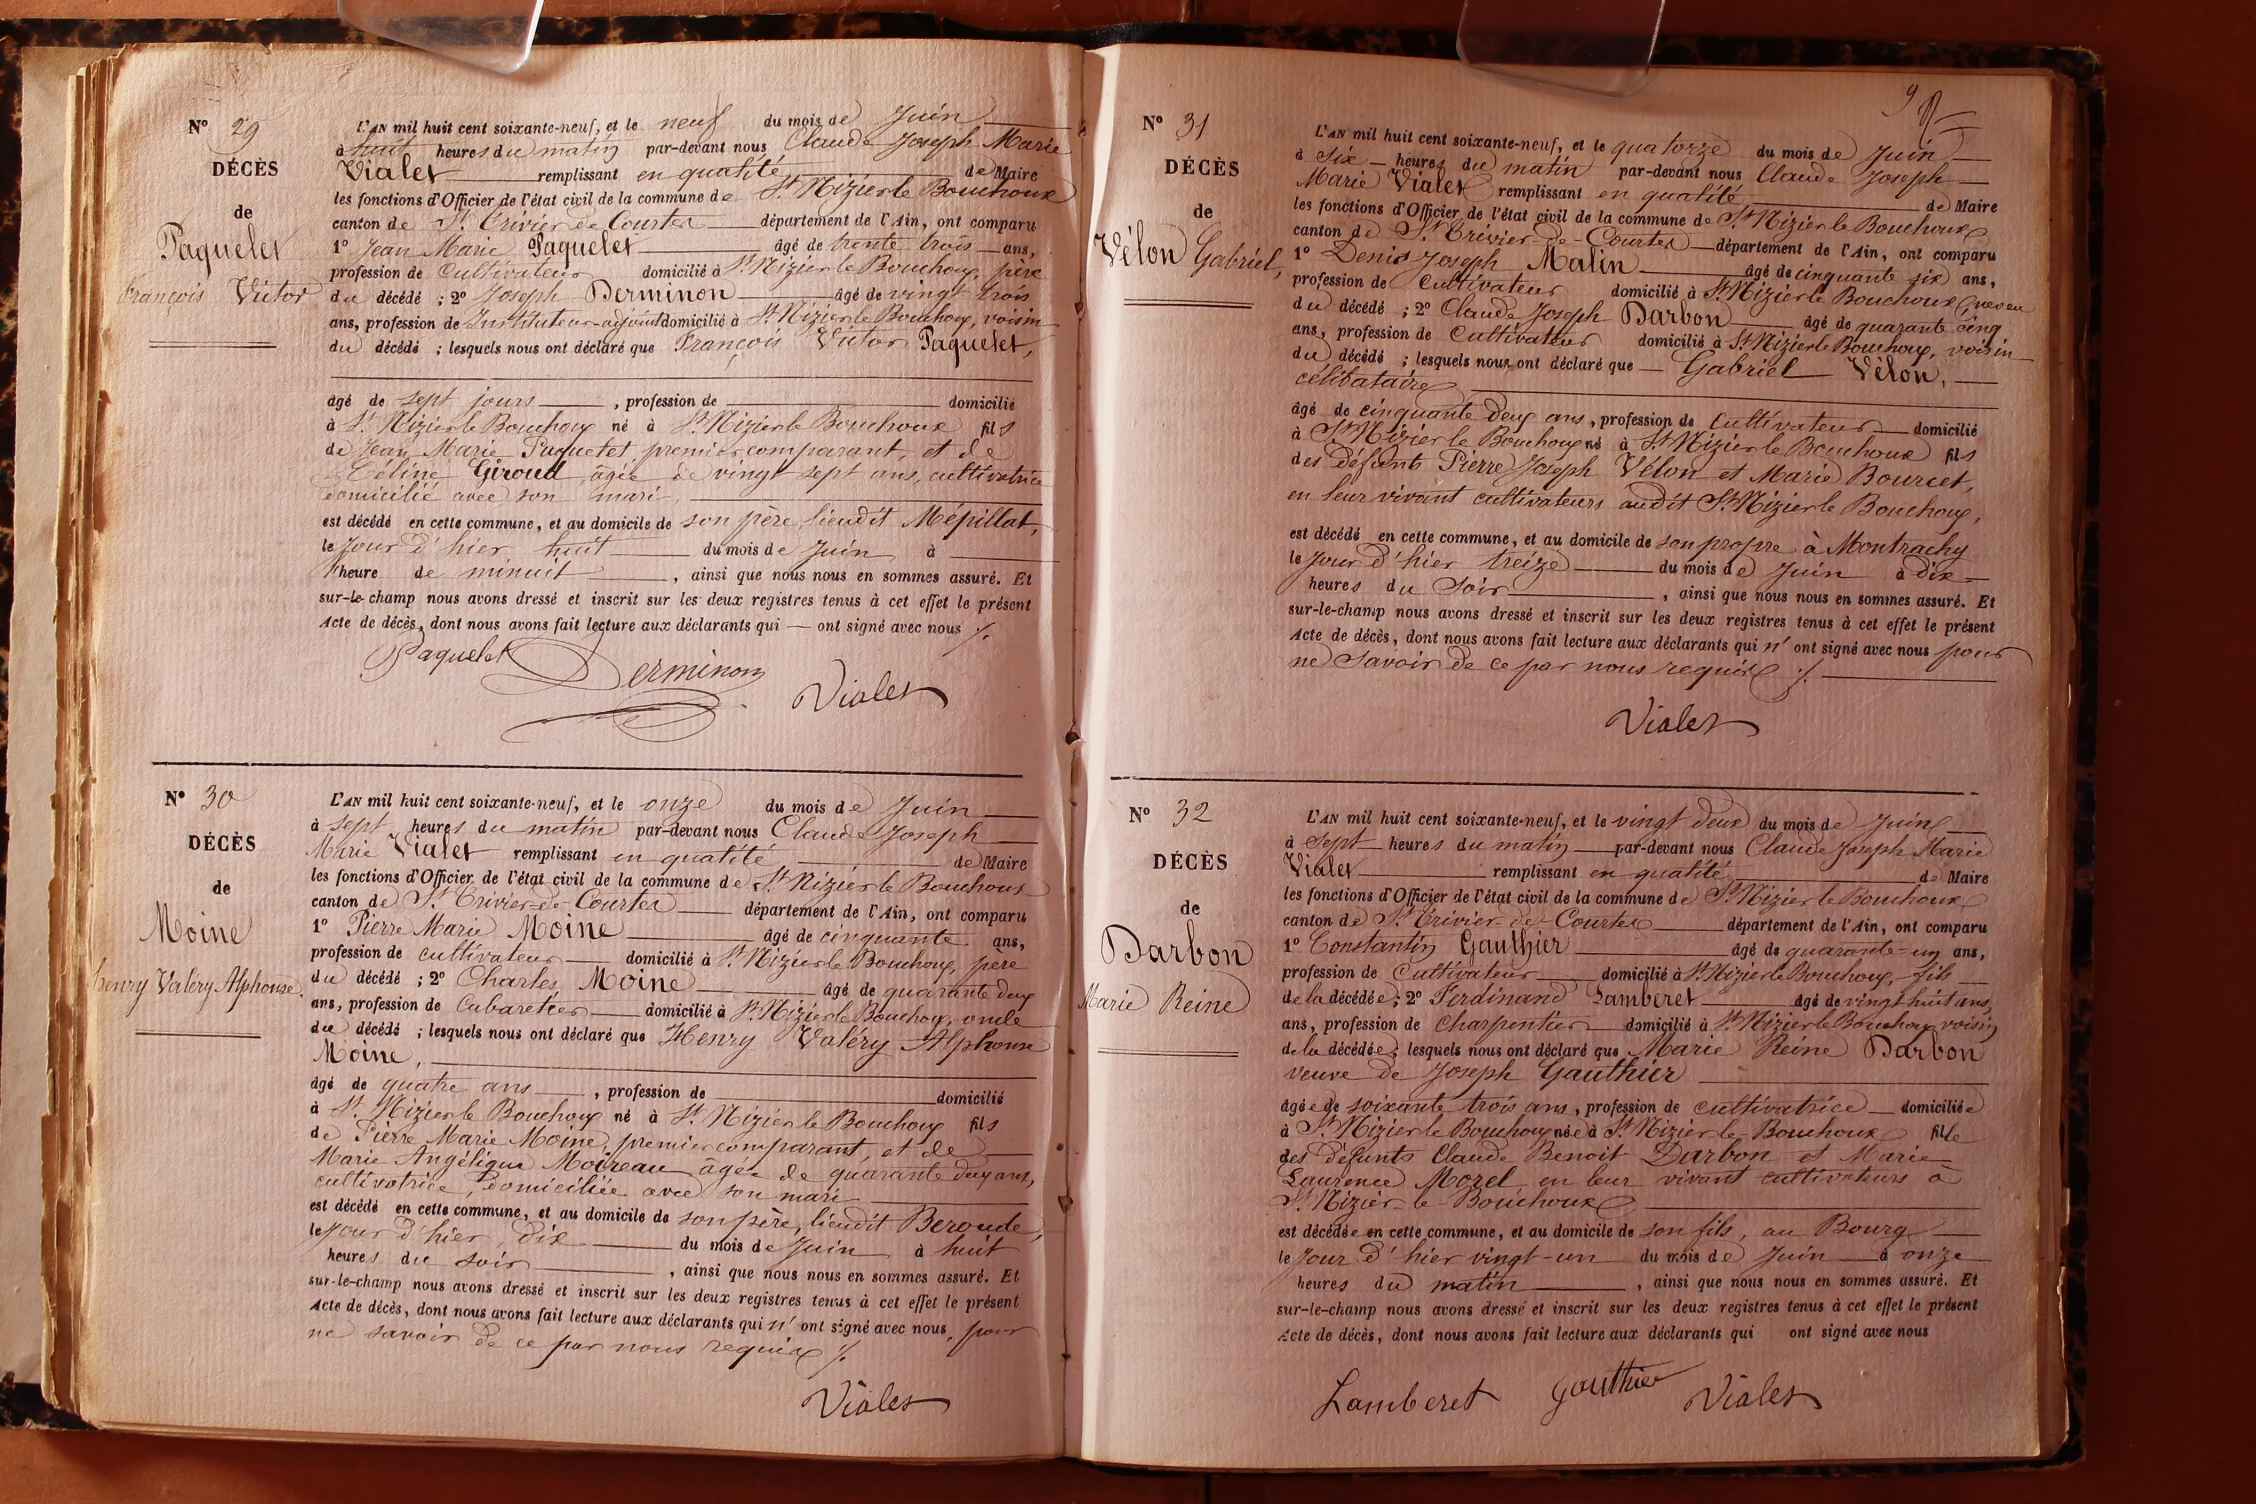 N° 29
DÉCÈS
de
Paquelet
François Victor
L'AN mil huit cent soixante-neuf, et le neuf du mois de Juin
à huit heures du matin par-devant nous Claude Joseph Marie
Vialet remplissant en qualité de Maire
les fonctions d'Officier de l'état civil de la commune de St Nizier le Bouchoux
canton de St Trivier de Courtes département de l'Ain, ont comparu
1° Jean Marie Paquelet âgé de trente trois ans,
profession de Cultivateur domicilié à St Nizier le Bouchoux, père
du décédé ; 2° Joseph Derminon âgé de vingt trois
ans, profession de Instituteur-adjoint domicilié à St Nizier le Bouchoux, voisin
du décédé ; lesquels nous ont déclaré que François Victor Paquelet,
âgé de sept jours , profession de domicilié
à St Nizier le Bouchoux né à St Nizier le Bouchoux fils
de Jean Marie Paquelet, premier comparant, et de
Céline Giroud, âgée de vingt sept ans, cultivatrice
domicilié avec son mari,
est décédé en cette commune, et au domicile de son père, lieudit Mépillat,
le jour d'hier huit du mois de Juin à
l'heure de minuit , ainsi que nous nous en sommes assuré. Et
sur-le-champ nous avons dressé et inscrit sur les deux registres tenus à cet effet le présent
Acte de décès, dont nous avons fait lecture aux déclarants qui ont signé avec nous ./.
Paquelet Derminon Vialet
N° 30
DÉCÈS
de
Moine
henry Valéry Alphonse.
L'AN mil huit cent soixante-neuf, et le onze du mois de Juin
à sept heures du matin par-devant nous Claude Joseph
Marie Vialet remplissant en qualité de Maire
les fonctions d'Officier de l'état civil de la commune de St Nizier le Bouchoux
canton de St Trivier de Courtes département de l'Ain, ont comparu
1° Pierre Marie Moine âgé de cinquante ans,
profession de cultivateur domicilié à St Nizier le Bouchoux, père
du décédé ; 2° Charles Moine âgé de quarante deux
ans, profession de Cabaretier domicilié à St Nizier le Bouchoux, oncle
du décédé ; lesquels nous ont déclaré que Henry Valéry Alphonse
Moine,
âgé de quatre ans , profession de domicilié
à St Nizier le Bouchoux né à St Nizier le Bouchoux fils
de Pierre Marie Moine, premier comparant, et de
Marie Angélique Moireau âgée de quarante deux ans,
cultivatrice, domiciliée avec son mari
est décédé en cette commune, et au domicile de son père, lieudit Beroude,
le jour d'hier, dix du mois de Juin à huit
heures du soir , ainsi que nous nous en sommes assuré. Et
sur-le-champ nous avons dressé et inscrit sur les deux registres tenus à cet effet le présent
Acte de décès, dont nous avons fait lecture aux déclarants qui n'ont signé avec nous, pour
ne savoir de ce par nous requis ./.
Vialet
N° 31
DÉCÈS
de
Vélon Gabriel,
L'AN mil huit cent soixante-neuf, et le quatorze du mois de Juin
à six heures du matin par-devant nous Claude Joseph
Marie Vialet remplissant en qualité de Maire
les fonctions d'Officier de l'état civil de la commune de St Nizier le Bouchoux
canton de St Trivier de Courtes département de l'Ain, ont comparu
1° Denis Joseph Malin âgé de cinquante six ans,
profession de Cultivateur domicilié à St Nizier le Bouchoux, neveu
du décédé ; 2° Claude Joseph Darbon âgé de quarante cinq
ans, profession de Cultivateur domicilié à St Nizier le Bouchoux, voisin
du décédé ; lesquels nous ont déclaré que Gabriel Vélon,
célibataire
âgé de cinquante deux ans, profession de Cultivateur domicilié
à St Nizier le Bouchoux né à St Nizier le Bouchoux fils
des défunts Pierre Joseph Vélon et Marie Bourcet,
en leur vivant cultivateurs audit St Nizier le Bouchoux,
est décédé en cette commune, et au domicile de son propre à Montrachy
le jour d'hier treize du mois de Juin à dix
heures du Soir , ainsi que nous nous en sommes assuré. Et
sur-le-champ nous avons dressé et inscrit sur les deux registres tenus à cet effet le présent
Acte de décès, dont nous avons fait lecture aux déclarants qui n'ont signé avec nous pour
ne savoir de ce par nous requis ./.
Vialet
N° 32
DÉCÈS
de
Darbon
Marie Reine
L'AN mil huit cent soixante-neuf, et le vingt deux du mois de Juin
à sept heures du matin par-devant nous Claude Joseph Marie
Vialet remplissant en qualité de Maire
les fonctions d'Officier de l'état civil de la commune de St Nizier le Bouchoux
canton de St Trivier de Courtes département de l'Ain, ont comparu
1° Constantin Gauthier âgé de quarante-un ans,
profession de Cultivateur domicilié à St Nizier le Bouchoux, fils
de la décédée ; 2° Ferdinand Lamberet âgé de vingt huit ans,
ans, profession de Charpentier domicilié à St Nizier le Bouchoux voisin
de la décédée ; lesquels nous ont déclaré que Marie Reine Darbon
veuve de Joseph Gauthier
âgée de soixante trois ans, profession de cultivatrice domiciliée
à St Nizier le Bouchoux née à St Nizier le Bouchoux fille
des défunts Claude Benoit Darbon et Marie
Laurence Morel en leur vivant cultivateurs à
St Nizier le Bouchoux
est décédée en cette commune, et au domicile de son fils, au Bourg
le jour d'hier vingt-un du mois de Juin à onze
heures du matin , ainsi que nous nous en sommes assuré. Et
sur-le-champ nous avons dressé et inscrit sur les deux registres tenus à cet effet le présent
Acte de décès, dont nous avons fait lecture aux déclarants qui ont signé avec nous
Lamberet Gauthier Vialet